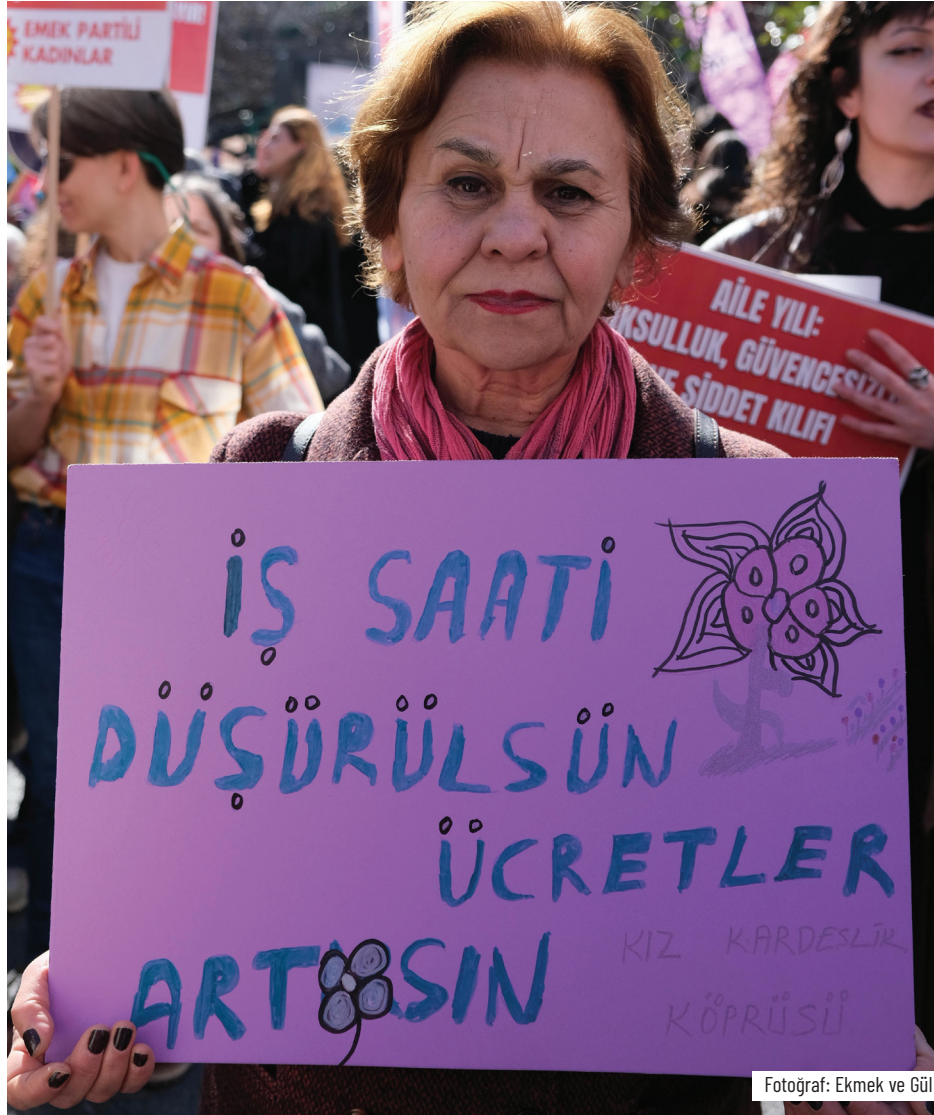 EMEK PARTİLİ
KADINLAR
AİLE YILI:
GÜVENCESİZLİ
ŞİDDET KILIFI
İŞ SAATİ
DÜŞÜRÜLSÜN
ÜCRETLER
ARTSIN
KIZ KARDEŞLİK
KÖPRÜSÜ
Fotoğraf: Ekmek ve Gül